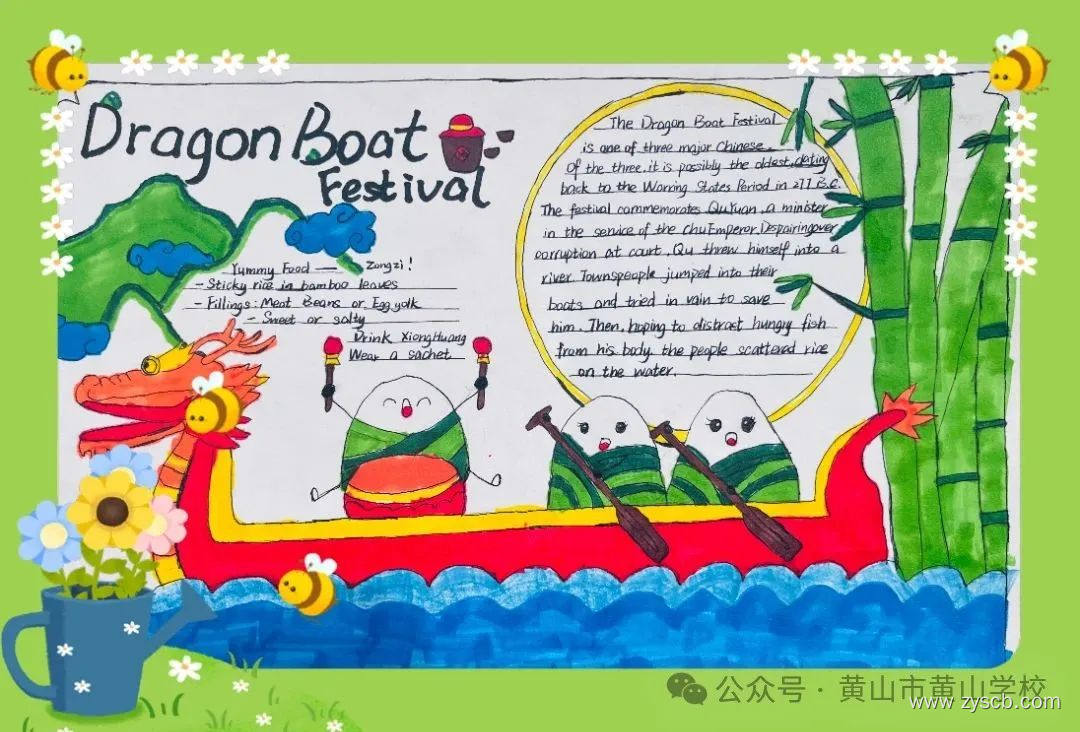 Dragon Boat
Festival
Yummy Food — Zongzi!
- Sticky rice in bamboo leaves
- Fillings: Meat Beans or Egg yolk
- Sweet or salty
Drink XiongHuang
Wear a sachet
The Dragon Boat Festival
is one of three major Chinese.
Of the three, it is possibly the oldest, dating
back to the Warring States Period in 277 B.C.
The festival commemorates QuYuan, a minister
in the service of the Chu Emperor. Despairing over
corruption at court, Qu threw himself into a
river. Townspeople jumped into their
boats and tried in vain to save
him. Then, hoping to distract hungry fish
from his body, the people scattered rice
on the water.
公众号 · 黄山市黄山学校
www.zyscb.com